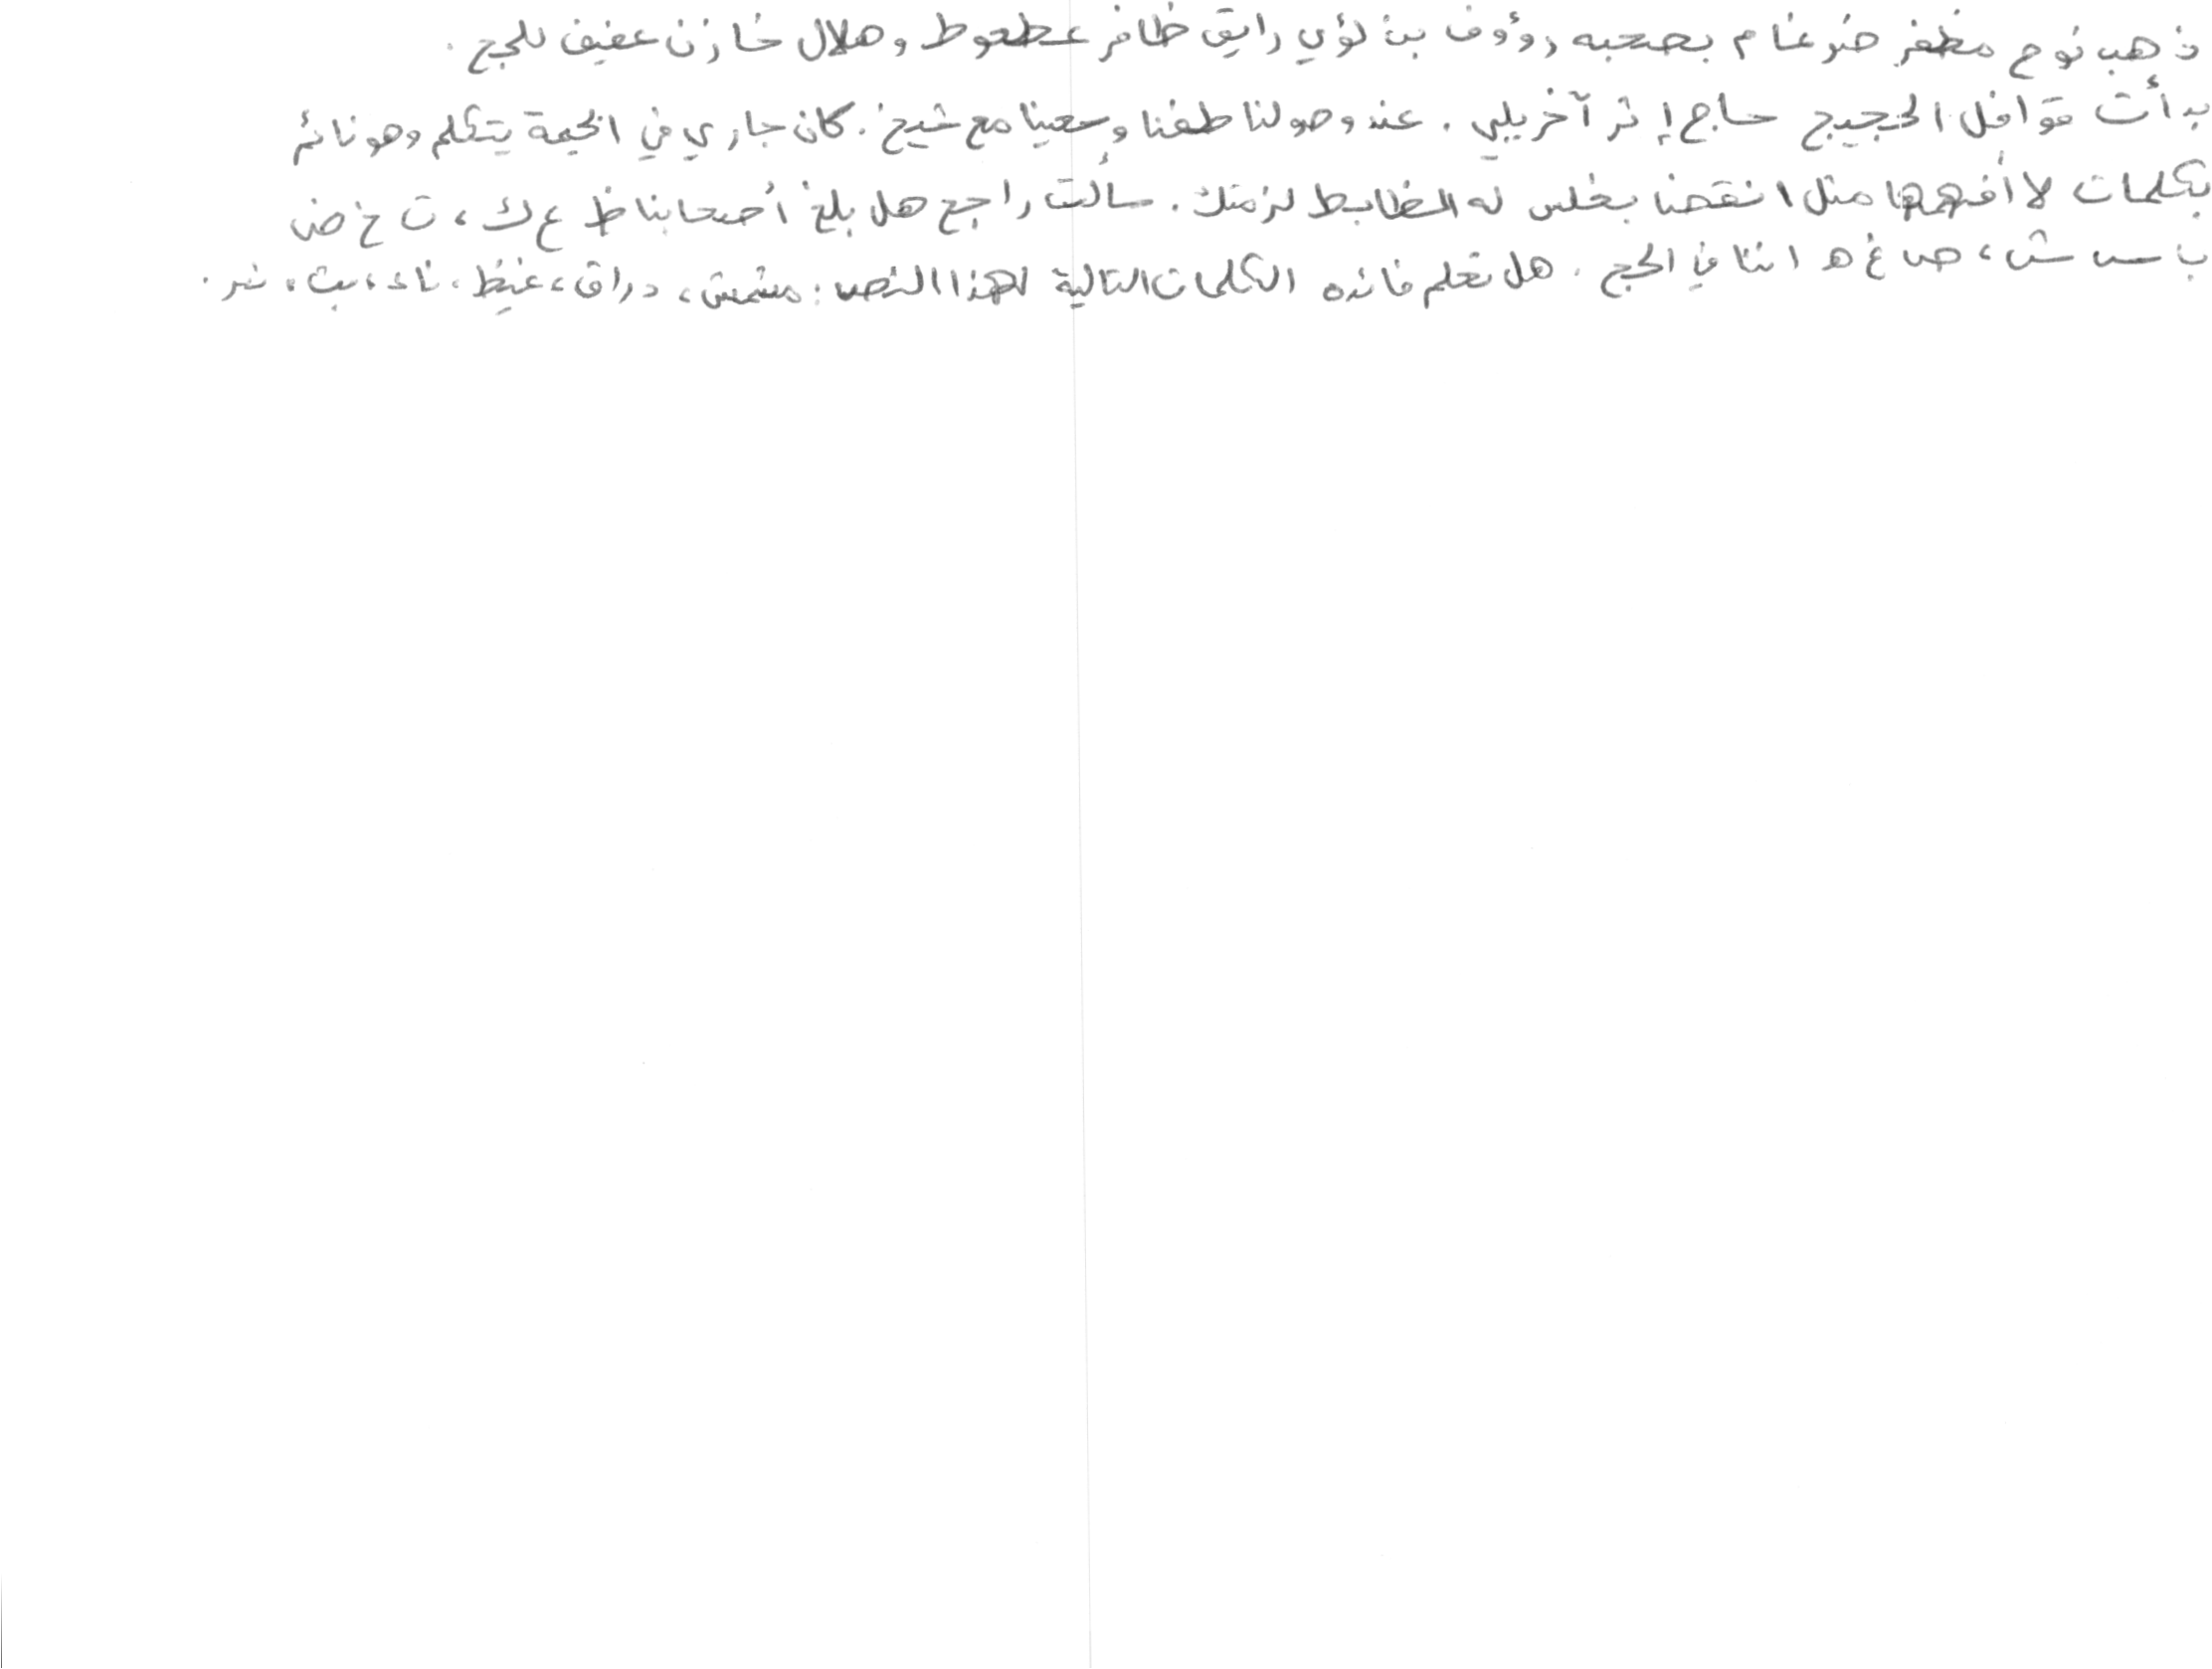 ذهب نوح مظفر ضرغام بصحبه رؤوف بن لؤي رايق ظافر عطعوط وهلال خازن عفيف للحج.
بدأت قوافل الحجيج حاج إثر آخر يلبي. عند وصولنا طفنا وسعينا مع شيخ. كان جاري في الخيمة يتكلم وهو نائم
بكلمات لا أفهمها مثل انقضنا بغلس له الظابط لزمتك. سألت راجح هل بلغ أصحابنا ظ ع ك، ت خ ض
ب س ش، ص غ ه اننا في الحج. هل تعلم فائده الكلمات التالية لهذا النص: مشمش، دراق، غيظ، ناء، بث، نر.